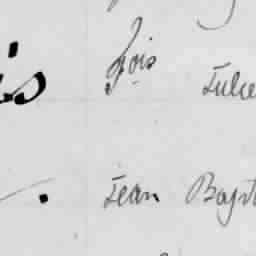 is fois Julie
. Jean Bapt